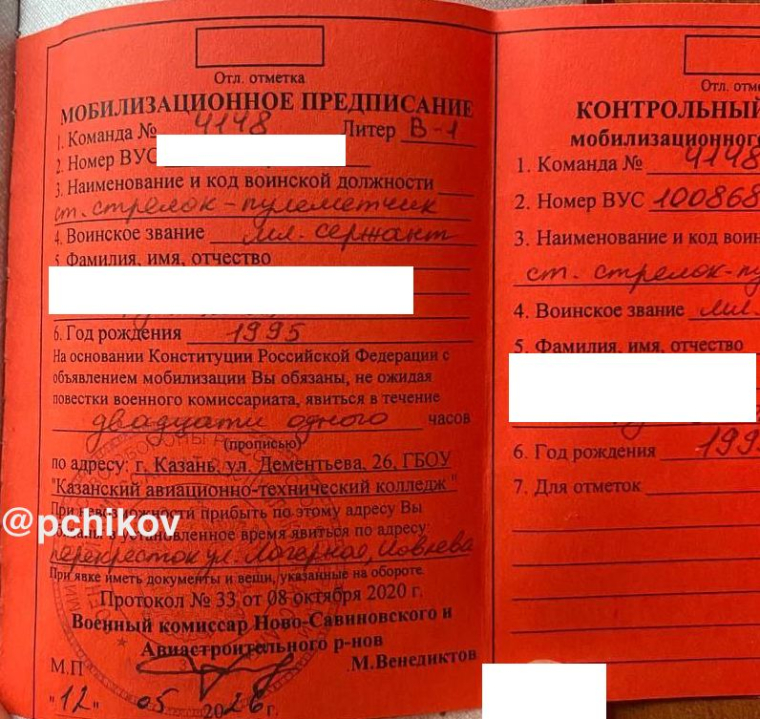 Отл. отметка
МОБИЛИЗАЦИОННОЕ ПРЕДПИСАНИЕ
1. Команда № 4148 Литер В-1
2. Номер ВУС
3. Наименование и код воинской должности
ст. стрелок-пулеметчик
4. Воинское звание мл. сержант
5 Фамилия, имя, отчество
6. Год рождения 1995
На основании Конституции Российской Федерации с
объявлением мобилизации Вы обязаны, не ожидая
повестки военного комиссариата, явиться в течение
двадцати одного часов
(прописью)
по адресу: г. Казань, ул. Дементьева, 26, ГБОУ
"Казанский авиационно-технический колледж"
При невозможности прибыть по этому адресу Вы
@pchikov
в установленное время явиться по адресу:
перекресток ул. Лагерная,
При явке иметь документы и вещи, указанные на обороте.
Протокол № 33 от 08 октября 2020 г.
Военный комиссар Ново-Савиновского и
Авиастроительного р-нов
М.П М.Венедиктов
"12" 05 2026 г.
Отл. отм
КОНТРОЛЬНЫЙ
мобилизационного
1. Команда № 4148
2. Номер ВУС 100868
3. Наименование и код воин
ст. стрелок-пу
4. Воинское звание мл.
5. Фамилия, имя, отчество
6. Год рождения 199
7. Для отметок